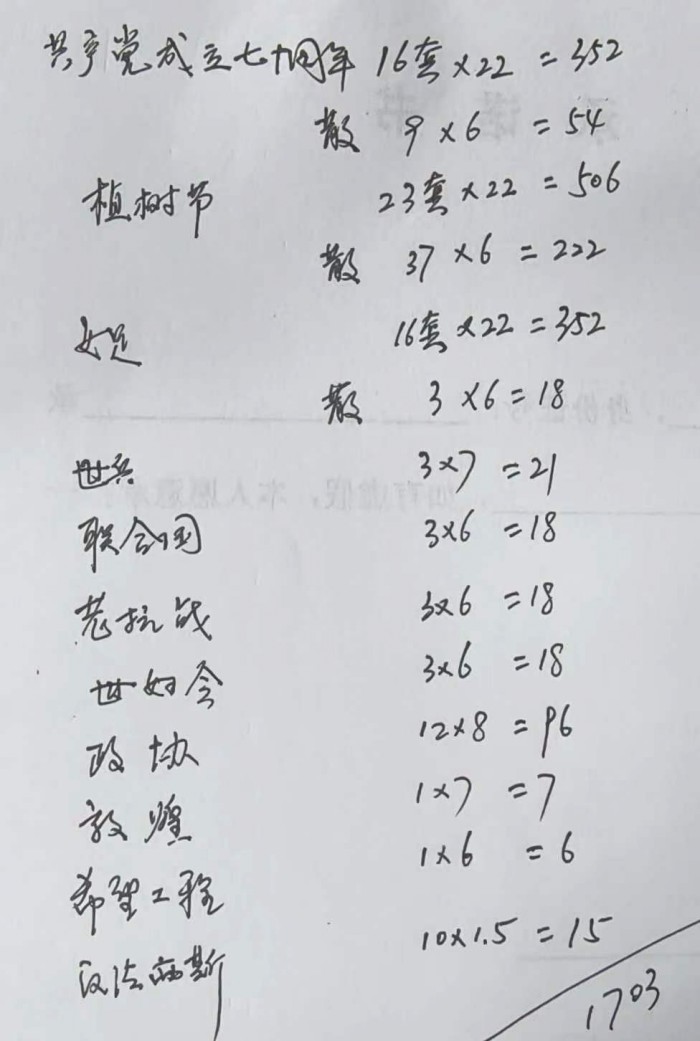 共产党成立七十周年 16套×22 = 352
散 9×6 = 54
植树节 23套×22 = 506
散 37×6 = 222
女足 16套×22 = 352
散 3×6 = 18
世乒 3×7 = 21
联合国 3×6 = 18
老抗战 3×6 = 18
世妇会 3×6 = 18
政协 12×8 = 96
敦煌 1×7 = 7
希望工程 1×6 = 6
反法西斯 10×1.5 = 15
1703